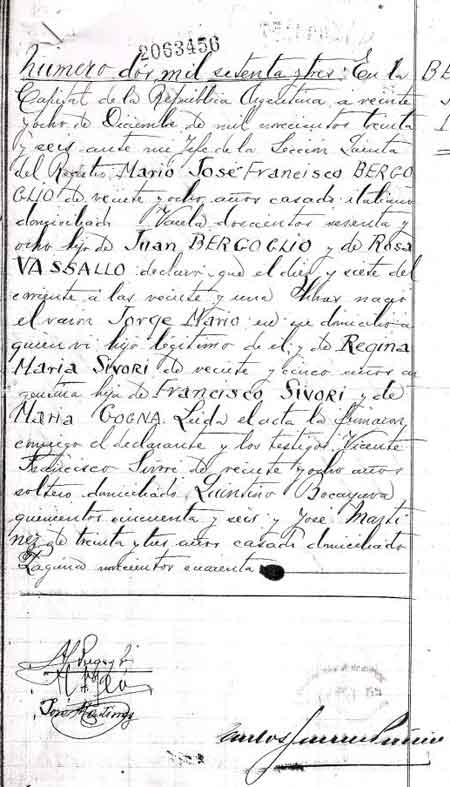 2063456
Número dos mil setenta y tres: En la BE
Capital de la República Argentina, a veinte
y ocho de Diciembre de mil novecientos treinta
y seis ante mi Jefe de la Seccion Quinta
del Registro, Mario José Francisco BERGO
GLIO de veinte y ocho años casado italiano
domiciliado Varela doscientos sesenta y
ocho hijo de Juan BERGOGLIO y de Rosa
VASSALLO: declaró, que el diez y siete del
corriente á las veinte y una horas nació
el varon Jorge Mario: en su domicilio á
quien vi hijo legítimo de él, y de Regina
Maria SIVORI de veinte y cinco años ar
gentina hija de Francisco SIVORI y de
Maria GOGNA. Leida el acta la firmaron
conmigo el declarante y los testigos Vicente
Francisco Sivori de veinte y ocho años
soltero domiciliado Quintino Bocayuva
quinientos cincuenta y seis y José Marti
nez de treinta y tres años casado domiciliado
Laguna novecientos cuarenta
José Martinez
Carlos